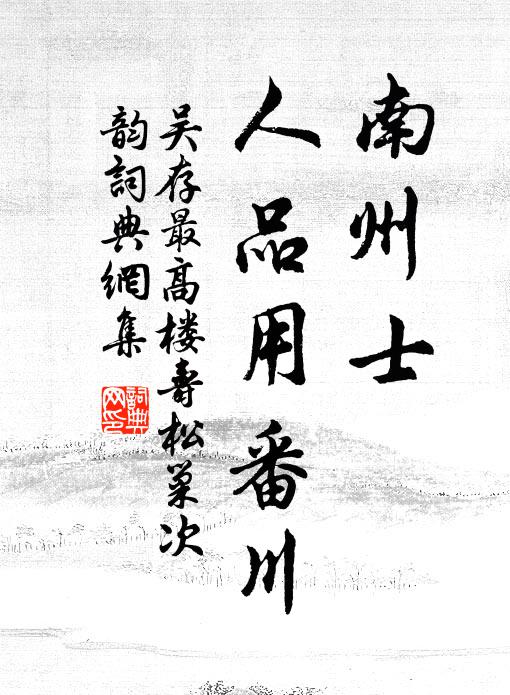 南州士
人品用番川
吴存最高楼寿松巢次
韵词典网集
词典
网印